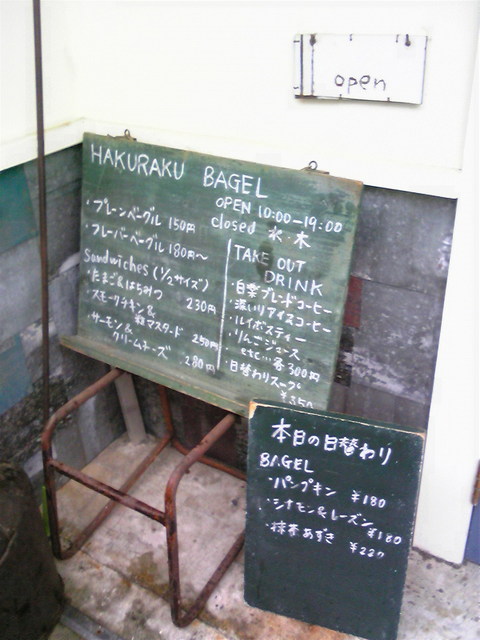 open
HAKURAKU BAGEL
OPEN 10:00-19:00
closed 水・木
・プレーンベーグル 150円
・フレーバーベーグル 180円〜
Sandwiches (1/2サイズ)
・たまご&はちみつ 230円
・スモークチキン&
粒マスタード 250円
・サーモン&
クリームチーズ 280円
TAKE OUT
DRINK
・白楽ブレンドコーヒー
・深いりアイスコーヒー
・ルイボスティー
・りんごジュース
etc... 各300円
・日替わりスープ
¥350
本日の日替わり
BAGEL
・パンプキン ¥180
・シナモン&レーズン
¥180
・抹茶あずき ¥220